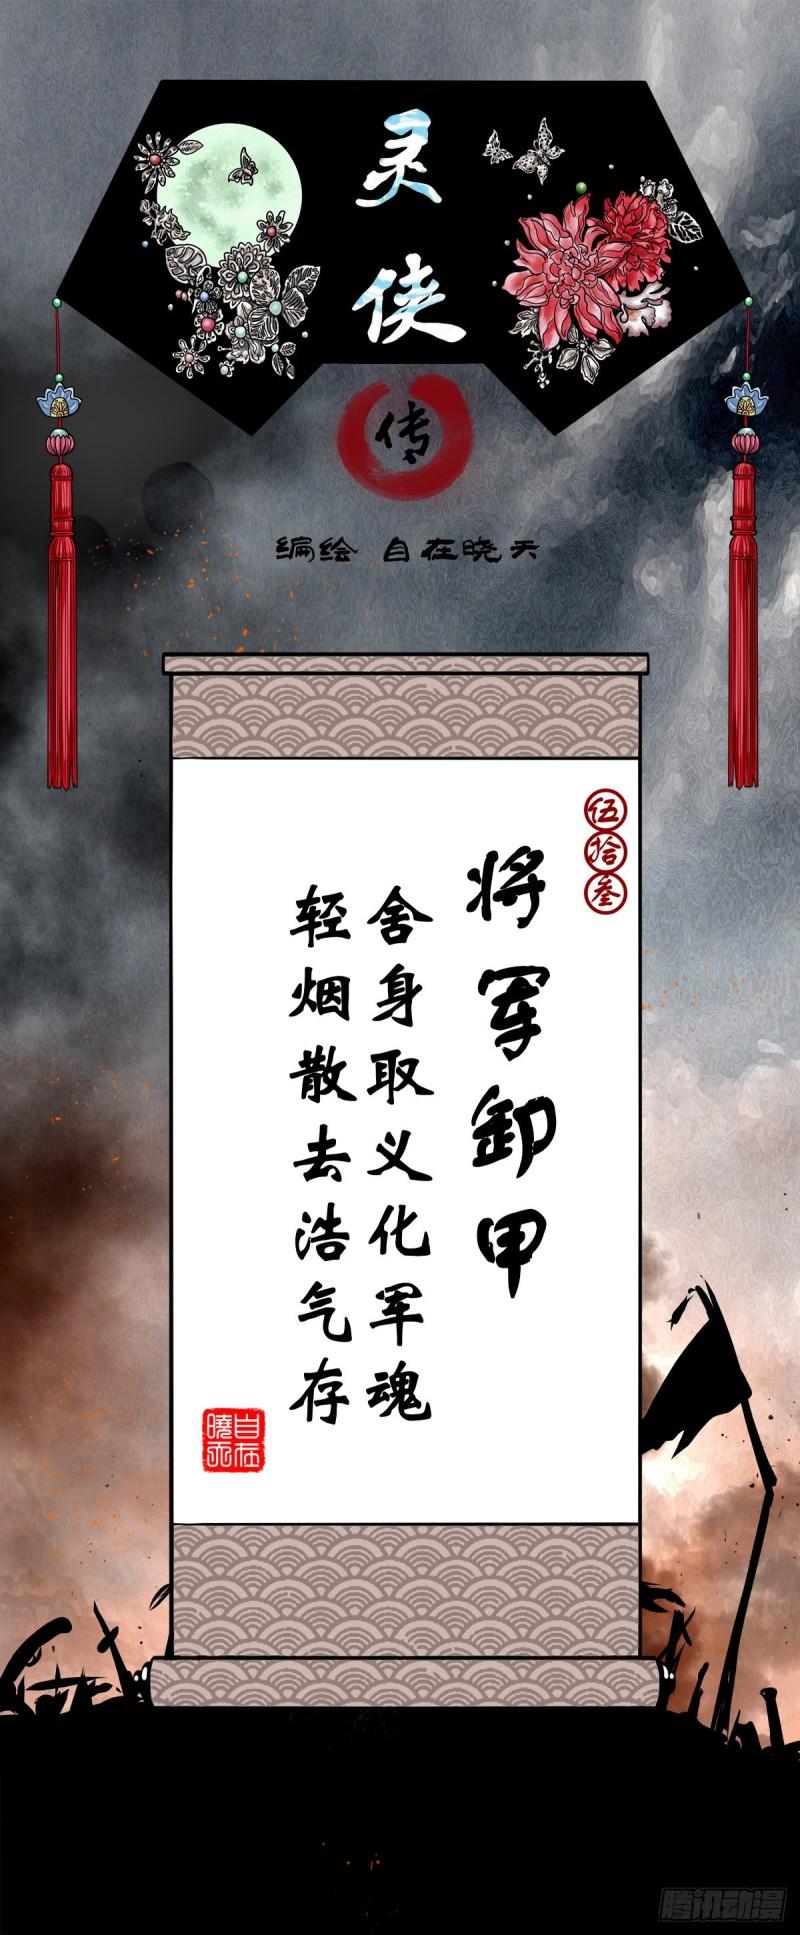 灵侠
传
编绘 自在晓天
伍拾叁
将军卸甲
舍身取义化军魂
轻烟散去浩气存
自在曉天
腾讯动漫